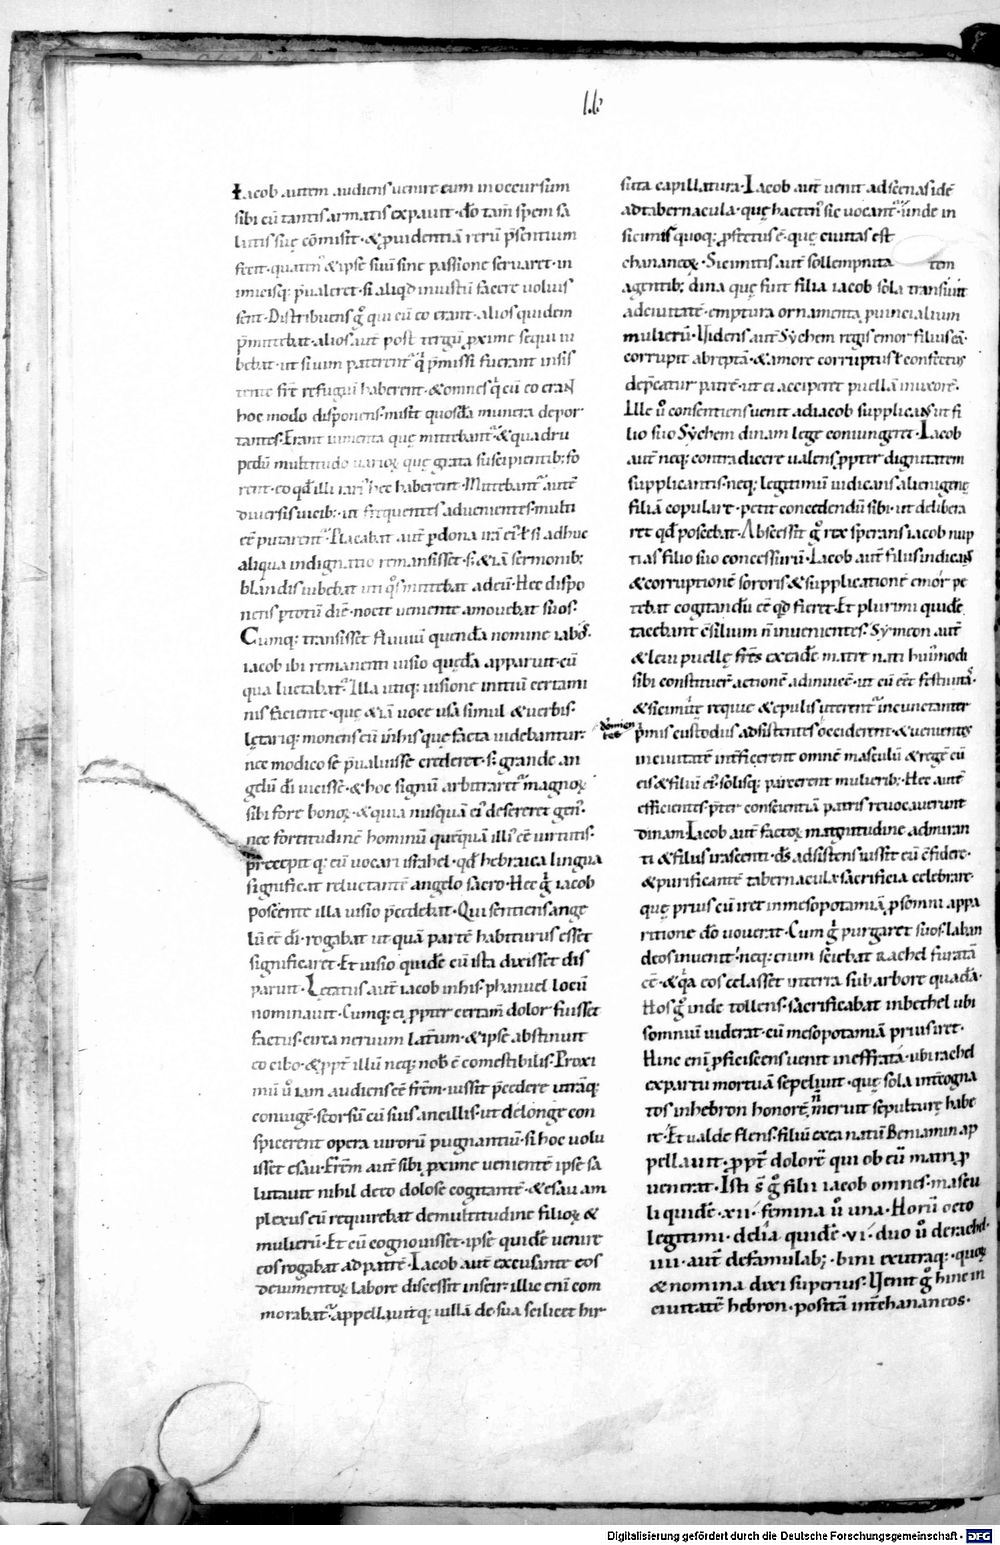 l.b̄
Iacob autem audiens uenire eum in occursum
sibi cū tantis armatis expauit · dō tam̄ spem sa
lutis suę cōmisit · & puidentiā rerū p̄sentium
fecit · quaten᾿ & ipse suū sine passione seruaret · in
imicisq; p̄ualeret · si aliqd iniustū facere uoluis
sent · Distribuens g᷎ qui cū eo erant · alios quidem
p̄mittebat · alios aut̄ post tergū pxime sequi iu
bebat · ut si uim paterent᷑ q᷎ p̄missi fuerant insis
tente fr̄e refugiū haberent · & omnes q᷎ cū eo eraN
hoc modo disponens · misit quosdā munera depor
tantes · Erant iumenta quę mittebant᷑ · & quadru
pedū multitudo uarioꝝ quę grata suscipientib; fo
rent · eo qd̄ illi rari᾿ hec haberent · Mittebant᷑ autē
diuersis uicib; · ut frequentes aduenientes · multi
eē putarent᷑ · Placabat aut̄ p dona irā ei᾿ · ł si adhuc
aliqua indignatio remansisset · s; & iā sermonib;
blandis iubebat uti q᷎s mittebat ad eū · Hec dispo
nens p totū diē · nocte ueniente amouebat suos ·
Cumq; transisset fluuiū quendā nomine iaboc̄ ·
iacob ibi remanenti uisio quędā apparuit · cū
qua luctabat᷑ · Illa utiq; uisione initiū certami
nis faciente · quę & iā uoce usa simul & uerbis ·
lętariq; monens eū in his que facta uidebantur ·
nec modico se p̄ualuisse crederet · s; grande an
gelū dī uicisse · & hoc signū arbitraret᷑ magnoꝝ
sibi fore bonoꝝ · & quia nusquā ei᾿ desereret gen᾿ ·
nec fortitudinē hominū quēquā illi᾿ eē uirtutis ·
precepit q; eū uocari isrl̄ahel · qd̄ hebraica lingua
significat reluctantē angelo sacro · Hec g᷎ iacob
poscente illa uisio p̄cedebat · Qui sentiens ange
lū eē dī · rogabat ut quā partē habiturus esset
significaret · Et uisio quidē cū ista dixisset dis
paruit · Lętatus aut̄ iacob in his · phanuel locū
nominauit · Cumq; ei ppter certam̄ dolor fuisset
factus · circa neruum latum · & ipse abstinuit
eo cibo · & ppt̄ illū neq; nob̄ ē comestibilis · Proxi
mū u᷎ iam audiens eē fr̄em · iussit p̄cedere utrāq;
coniugē · seorsū cū suis ancillis · ut de longe con
spicerent opera uirorū pugnantiū · si hoc uolu
isset esau · Fr̄em aut̄ sibi pxime uenientē ipse sa
lutauit nihil de eo dolose cogitantē · & esau am
plexus eū requirebat de multitudine filioꝝ &
mulierū · Et cū cognouisset · ipse quidē uenire
eos rogabat ad patrē · Iacob aut̄ excusante eos
de iumentoꝝ labore discessit in seir · illic enī com
morabat᷑ · appellauitq; uillā de sua scilicet hir
suta capillatura · Iacob aut̄ uenit ad scenas idē
ad tabernacula · quę hacten᾿ sic uocant᷑ · unde in
sicimis quoq; pfectus ē · quę ciuitas est
chananeoꝝ · Sicimitis aut̄ sollempnita tem
agentib; dina quę fuit filia iacob sola transiuit
ad ciuitatē · emptura ornamenta puincialium
mulierū · Uidens aut̄ Sychem regis emor filius eā
corrupit abreptā · & amore corruptus ł confectus
dep̄catur patrē · ut ei acciperet puellā in uxorē ·
Ille u᷎ consentiens uenit ad iacob supplicaNs ut fi
lio suo Sychem dinam lege coniungeret · Iacob
aut̄ neq; contradicere ualens ppter dignitatem
supplicantis · neq; legitimū iudicans alienigenę
filiā copulare · petit concedendū sibi · ut delibera
ret qd̄ poscebat · Abscessit g᷎ rex sperans iacob nup
tias filio suo concessurū · Iacob aut̄ filiis indicaNs
& corruptionē sororis · & supplicationē emor pe
tebat cogitandū eē qd̄ fieret · Et plurimi quidē
tacebant c̄silium n̄ inuenientes · Symeon aut̄
& leui puellę fr̄es ex eadē matre nati hui᾿modi
sibi constituer̄ actionē adinuicē · ut cū eēt festiuita᾿
& sicimit̄ requie & epulis uterent᷑ incunctanter
dormien
tes
p̄mis custodius adsistentes occiderent · & uenientes
in ciuitatē interficerent omnē masculū & regē cū
eis & filiū ei᾿ · solisq; parcerent mulierib; · Hec autē
efficientes · p̄ter conscientiā patris reuocauerunt
dinam · Iacob aut̄ factoꝝ magnitudine admiran
ti & filiis irascenti · dn̄s adsistens iussit eū c̄fidere ·
& purificante tabernacula sacrificia celebrare ·
quę prius cū iret in mesopotamiā p somni appa
ritione dō uouerat · Cum g᷎ purgaret suos · laban
deos inuenit · neq; enim sciebat rachel furatā
eē · & q᷎a eos celasset in terra sub arbore quadā ·
Hos g᷎ inde tollens · sacrificabat in bethel ubi
somniū uiderat · cū mesopotamiā prius iret ·
Hinc enī pficiscens uenit in effrata · ubi rachel
ex partu mortuā sepeliuit · quę sola int̄ cogna
tos in hebron honorē n̄ meruit sepulturę habe
re · Et ualde flens · filiū ex ea natū Beniamin ap
pellauit · ppt̄ dolorē qui ob eū matri p
uenerat · Isti s̄ g᷎ filii iacob omnes · mascu
li quidē · xii · femina u᷎ una · Horū octo
legitimi · de lia quidē · vi · duo u᷎ de rachel ·
iiii · aut̄ de famulab; · bini ex utraq; · quoꝝ
& nomina dixi superius · Uenit g᷎ hinc in
ciuitatē hebron · positā int̄ chananeos ·
Digitalisierung gefördert durch die Deutsche Forschungsgemeinschaft - DFG